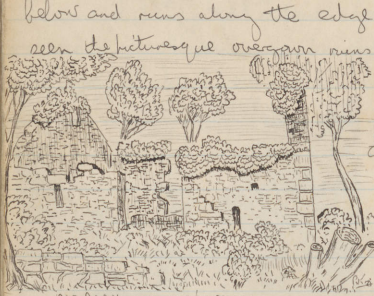 below and runs along the edge
seen the picturesque overgrown ruins